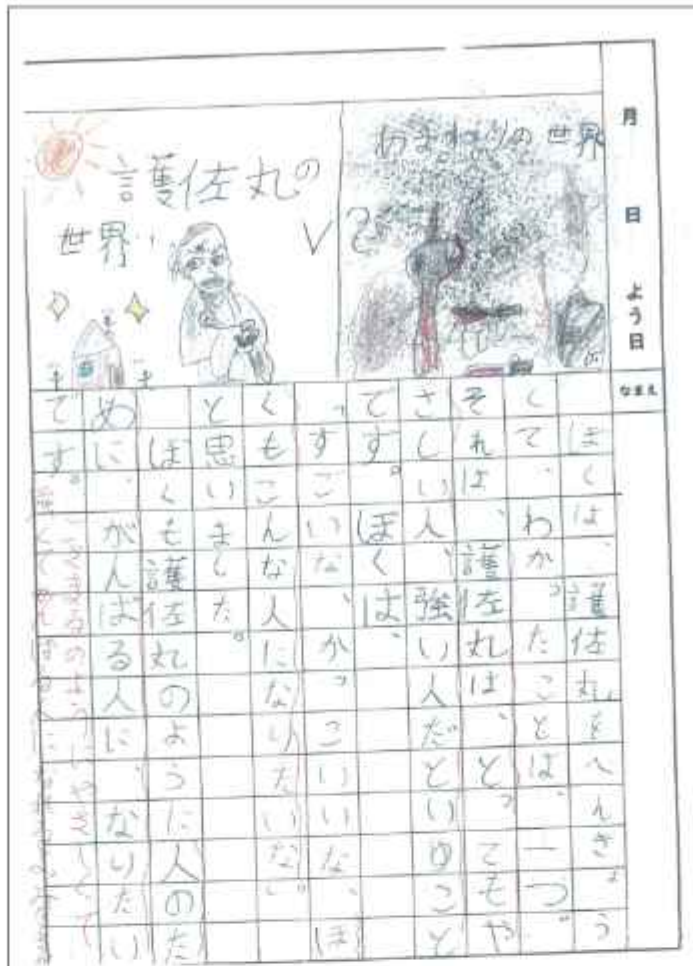 月 日 よう日
なまえ
あまわりの世界
VS
護佐丸の
世界
ぼくは、護佐丸をべんきょう
して、わかったことは、一つ。
それは、護佐丸は、とってもや
さしい人、強い人だといゆこと
です。ぼくは、
「すごいな、かっこいいな、ぼ
くもこんな人になりたいな。」
と思いました。
ぼくも護佐丸のように人のた
めに、がんばる人に、なりたい
です。
ごさまるのようにやさしくって